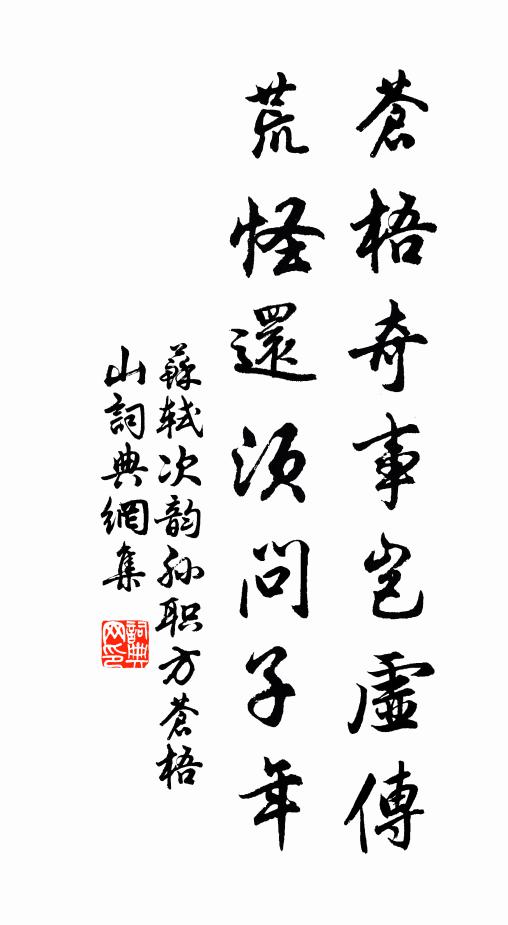 蒼梧奇事豈虛傳
荒怪還須問子年
蘇轼次韵孙职方蒼梧
山詞典網集
詞典
网印